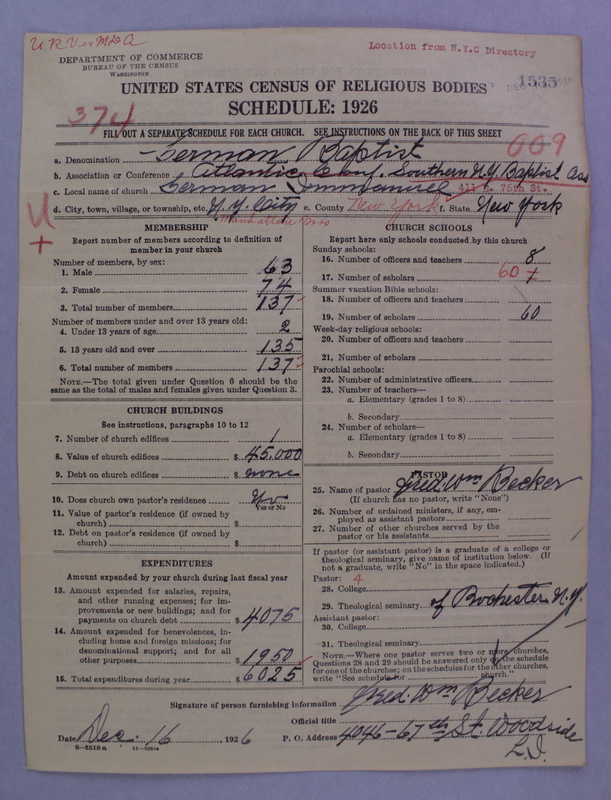 Location from N.Y.C Directory
DEPARTMENT OF COMMERCE
BUREAU OF THE CENSUS
WASHINGTON
1535
UNITED STATES CENSUS OF RELIGIOUS BODIES
SCHEDULE: 1926
374
FILL OUT A SEPARATE SCHEDULE FOR EACH CHURCH. SEE INSTRUCTIONS ON THE BACK OF THIS SHEET
009
a. Denomination German Baptist
b. Association or Conference Atlantic Conf. Southern N.Y. Baptist Ass
c. Local name of church German Immanuel 411 E. 75th St.
d. City, town, village, or township, etc. N.Y. City e. County New York f. State New York
Manhattan Boro
MEMBERSHIP
Report number of members according to definition of
member in your church
Number of members, by sex:
1. Male 63
2. Female 74
3. Total number of members 137
Number of members under and over 13 years old:
4. Under 13 years of age 2
5. 13 years old and over 135
6. Total number of members 137
NOTE.—The total given under Question 6 should be the
same as the total of males and females given under Question 3.
CHURCH BUILDINGS
See instructions, paragraphs 10 to 12
7. Number of church edifices 1
8. Value of church edifices $ 45,000
9. Debt on church edifices $ none
10. Does church own pastor's residence
Yes or No
11. Value of pastor's residence (if owned by
church) $
12. Debt on pastor's residence (if owned by
church) $
EXPENDITURES
Amount expended by your church during last fiscal year
13. Amount expended for salaries, repairs,
and other running expenses; for im-
provements or new buildings; and for
payments on church debt $ 4075
14. Amount expended for benevolences, in-
cluding home and foreign missions; for
denominational support; and for all
other purposes $ 1950
15. Total expenditures during year $ 6025
CHURCH SCHOOLS
Report here only schools conducted by this church
Sunday schools:
16. Number of officers and teachers 8
17. Number of scholars 60
Summer vacation Bible schools:
18. Number of officers and teachers
19. Number of scholars 60
Week-day religious schools:
20. Number of officers and teachers
21. Number of scholars
Parochial schools:
22. Number of administrative officers
23. Number of teachers—
a. Elementary (grades 1 to 8)
b. Secondary
24. Number of scholars—
a. Elementary (grades 1 to 8)
b. Secondary
PASTOR
25. Name of pastor Fred. Wm Becker
(If church has no pastor, write "None")
26. Number of ordained ministers, if any, em-
ployed as assistant pastors
27. Number of other churches served by the
pastor or his assistants
If pastor (or assistant pastor) is a graduate of a college or
theological seminary, give name of institution below. (If
not a graduate, write "No" in the space indicated.)
Pastor: 4
28. College
29. Theological seminary of Rochester N.Y.
Assistant pastor:
30. College
31. Theological seminary
NOTE.—Where one pastor serves two or more churches,
Questions 28 and 29 should be answered only on the schedule
for one of the churches; on the schedules for the other churches,
write "See schedule for church."
Signature of person furnishing information Fred. Wm Becker
Official title
Date Dec. 16, 1926 P. O. Address 4046-67th St. Woodside
L.I.
8-5518a